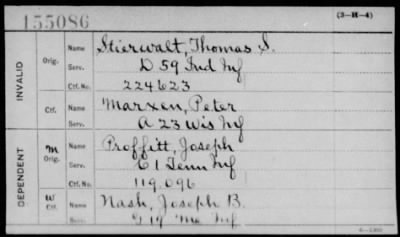 155086 (3-H-4)
INVALID
Orig. Name Stierwalt, Thomas S.
Serv. D 59 Ind Inf
Ctf. No. 224623
Ctf. Name Marxen, Peter
Serv. A 23 Wis Inf
DEPENDENT
M Orig. Name Proffitt, Joseph
Serv. C 1 Tenn Inf
Ctf. No. 119,096
W Ctf. Name Nash, Joseph B.
Serv. G 19 Me Inf